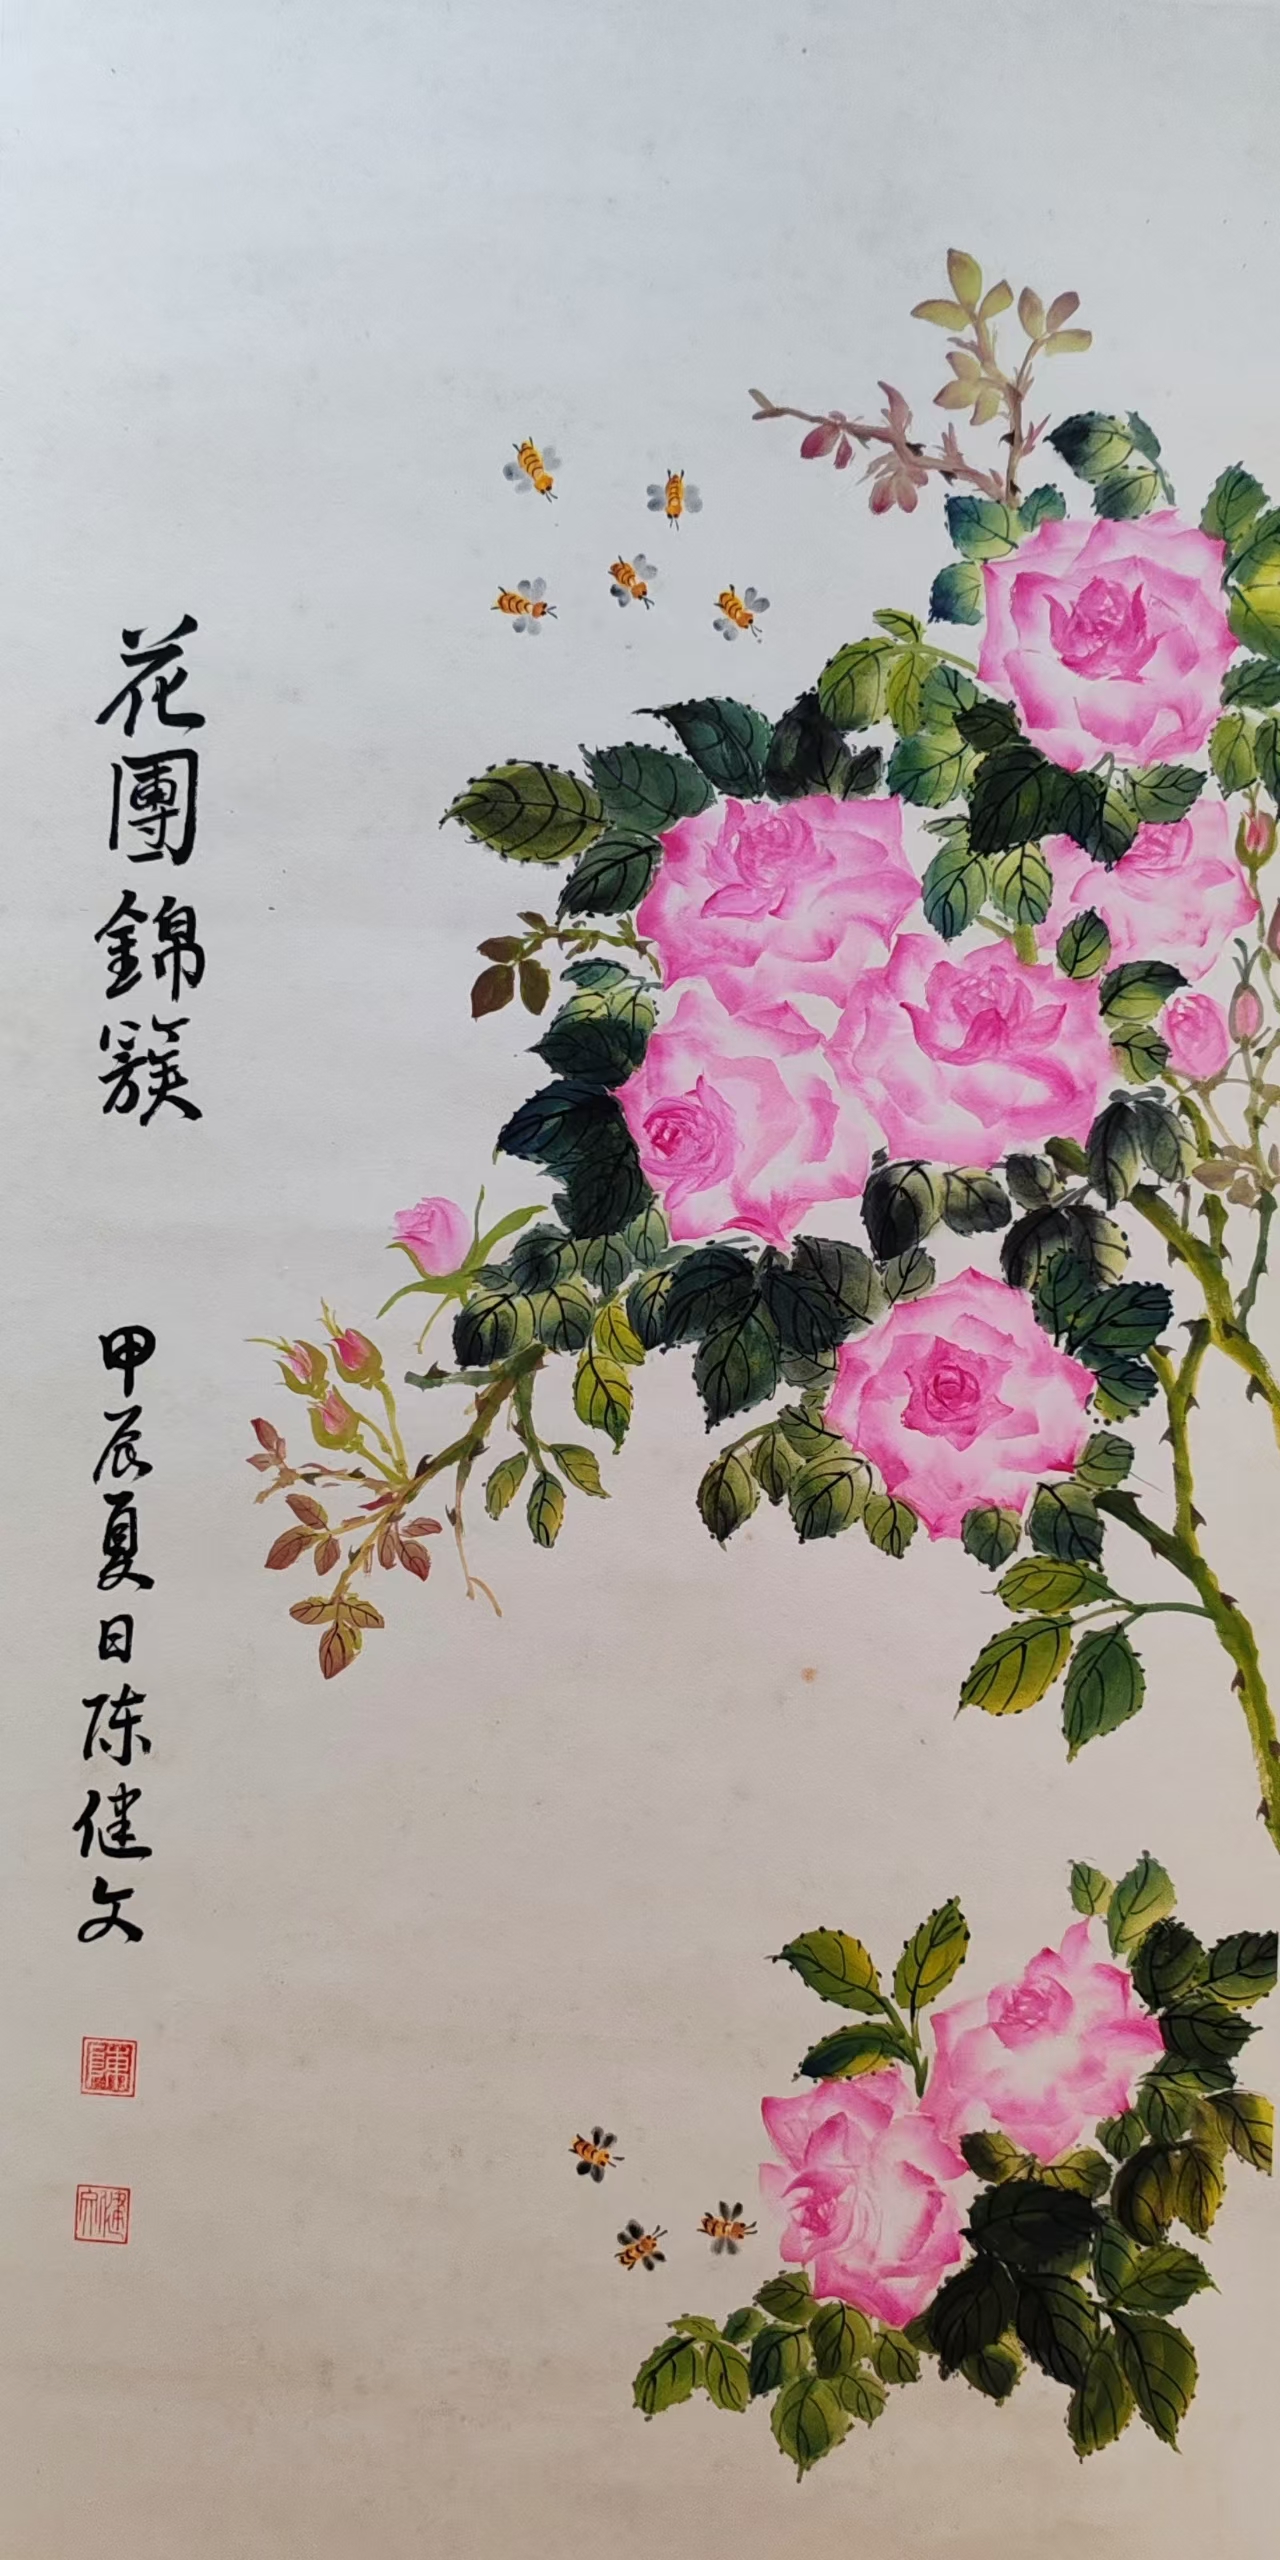 花團錦簇
甲辰夏日陈健文